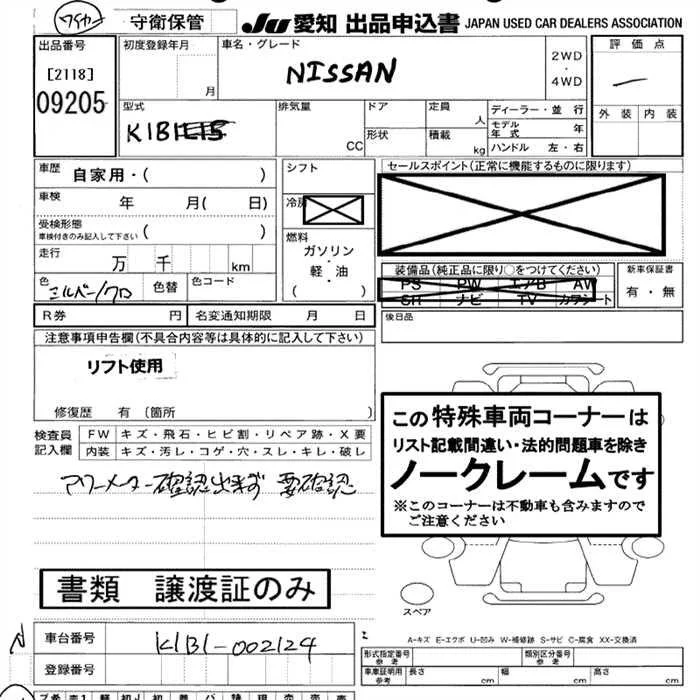 守衛保管 JU 愛知 出品申込書 JAPAN USED CAR DEALERS ASSOCIATION
出品番号 初度登録年月 車名・グレード 2WD 評価点
[2118] 月 NISSAN ・ —
09205 4WD 外装 内装
型式 排気量 ドア 定員 ディーラー・並 行
K1B1 CC 形状 人 モデル年式 年
積載 kg ハンドル 左・右
車歴 自家用・( ) シフト セールスポイント(正常に機能するものに限ります)
車検 年 月( 日) 冷房
受検形態 ( )
車検付きのみ記入して下さい
燃料
走行 万 千 km ガソリン・軽・油 ( )
装備品(純正品に限り○をつけてください) 新車保証書
PS PW エアB AW 有・無
SR ナビ TV カワシート
色 シルバー/クロ 色替 色コード
R券 円 名変通知期限 月 日 後日品
注意事項申告欄(不具合内容等は具体的に記入して下さい)
リフト使用
修復歴 有 (箇所 )
検査員 FW キズ・飛石・ヒビ割・リペア跡・X要
記入欄 内装 キズ・汚レ・コゲ・穴・スレ・キレ・破レ
アワーメーター確認出来ず 要確認
この特殊車両コーナーは
リスト記載間違い・法的問題車を除き
ノークレームです
※このコーナーは不動車も含みますので
ご注意ください
書類 譲渡証のみ
スペア
N 車台番号 K1B1-002124
登録番号
A-キズ E-エクボ U-凹み W-補修跡 S-サビ C-腐食 XX-交換済
形式指定番号 参考 類別区分番号 参考
車庫証明用 参考 長さ cm 幅 cm 高さ cm